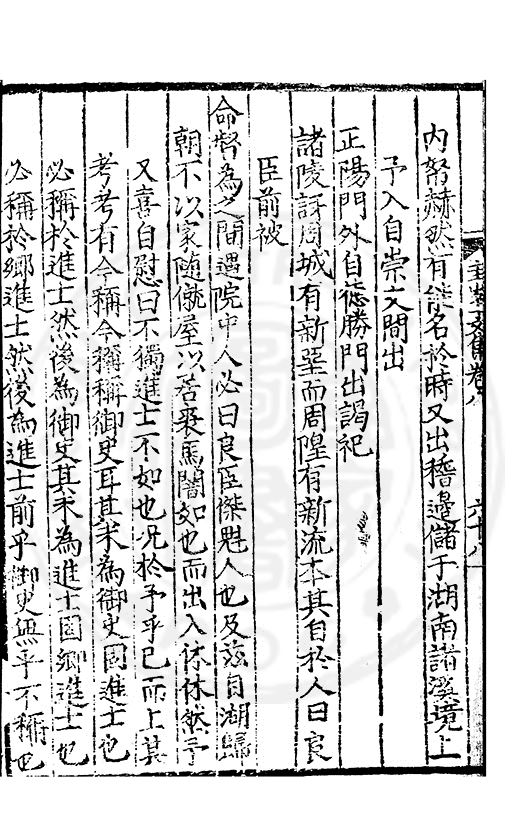 內帑赫然有能名於時又出稽邊儲于湖南諸溪境上
予入自崇文間出
正陽門外自德勝門出謁祀
諸陵訝周城有新堊而周隍有新流本其自於人曰良
臣前被
命督為之間遇院中人必曰良臣傑魁人也及茲自湖歸
朝不以家隨僦屋以居乘馬闇如也而出入休休然予
又喜自慰曰不獨進士不如也况於予乎已而上其
考考有令稱令稱稱御史耳其未為御史固進士也
必稱於進士然後為御史其未為進士固鄉進士也
必稱於鄉進士然後為進士前乎御史無乎不稱也
文集卷八
六十八